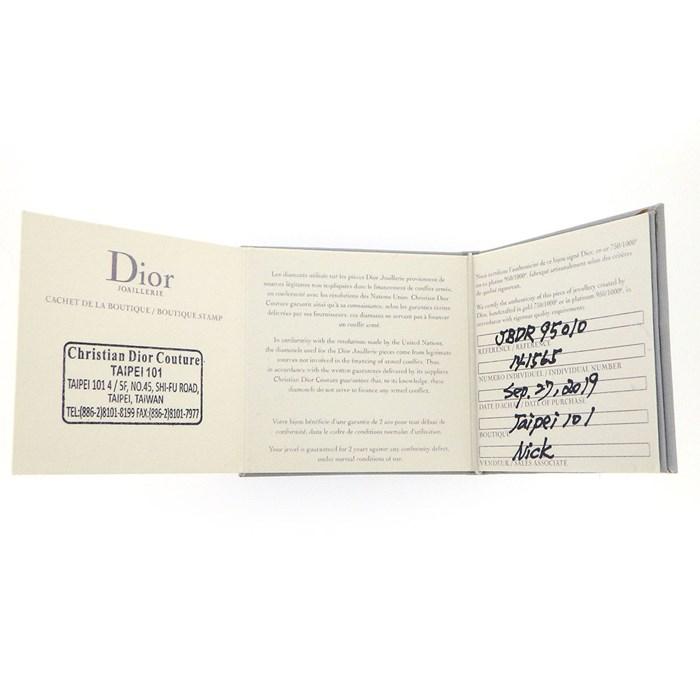 Dior
JOAILLERIE
CACHET DE LA BOUTIQUE / BOUTIQUE STAMP
Christian Dior Couture
TAIPEI 101
TAIPEI 101 4 / 5F, NO.45, SHI-FU ROAD,
TAIPEI, TAIWAN
TEL:(886-2)8101-8199 FAX:(886-2)8101-7977
Les diamants utilisés sur les pièces Dior Joaillerie proviennent de
sources légitimes non impliquées dans le financement de conflits armés,
en conformité avec les résolutions des Nations Unies. Christian Dior
Couture garantit ainsi qu'à sa connaissance, selon les garanties écrites
délivrées par ses fournisseurs, ces diamants ne servent pas à financer
un conflit armé.
In conformity with the resolutions made by the United Nations,
the diamonds used for the Dior Joaillerie pieces come from legitimate
sources not involved in the financing of armed conflict. Thus,
in accordance with the written guarantees delivered by its suppliers
Christian Dior Couture guarantees that, to its knowledge, these
diamonds do not serve to finance any armed conflict.
Votre bijou bénéficie d'une garantie de 2 ans pour tout défaut de
conformité, dans le cadre de conditions normales d'utilisation.
Your jewel is guaranteed for 2 years against any conformity defect,
under normal conditions of use.
Nous certifions l'authenticité de ce bijou signé Dior, en or 750/1000e
ou en platine 950/1000e, fabriqué artisanalement selon des critères
de qualité rigoureux.
We certify the authenticity of this piece of jewellery created by
Dior, handcrafted in gold 750/1000e or in platinum 950/1000e, in
accordance with rigorous quality requirements.
JBDR 95010
REFERENCE / REFERENCE
141565
NUMERO INDIVIDUEL / INDIVIDUAL NUMBER
Sep. 27, 2019
DATE D'ACHAT / DATE OF PURCHASE
Taipei 101
BOUTIQUE
Nick
VENDEUR / SALES ASSOCIATE